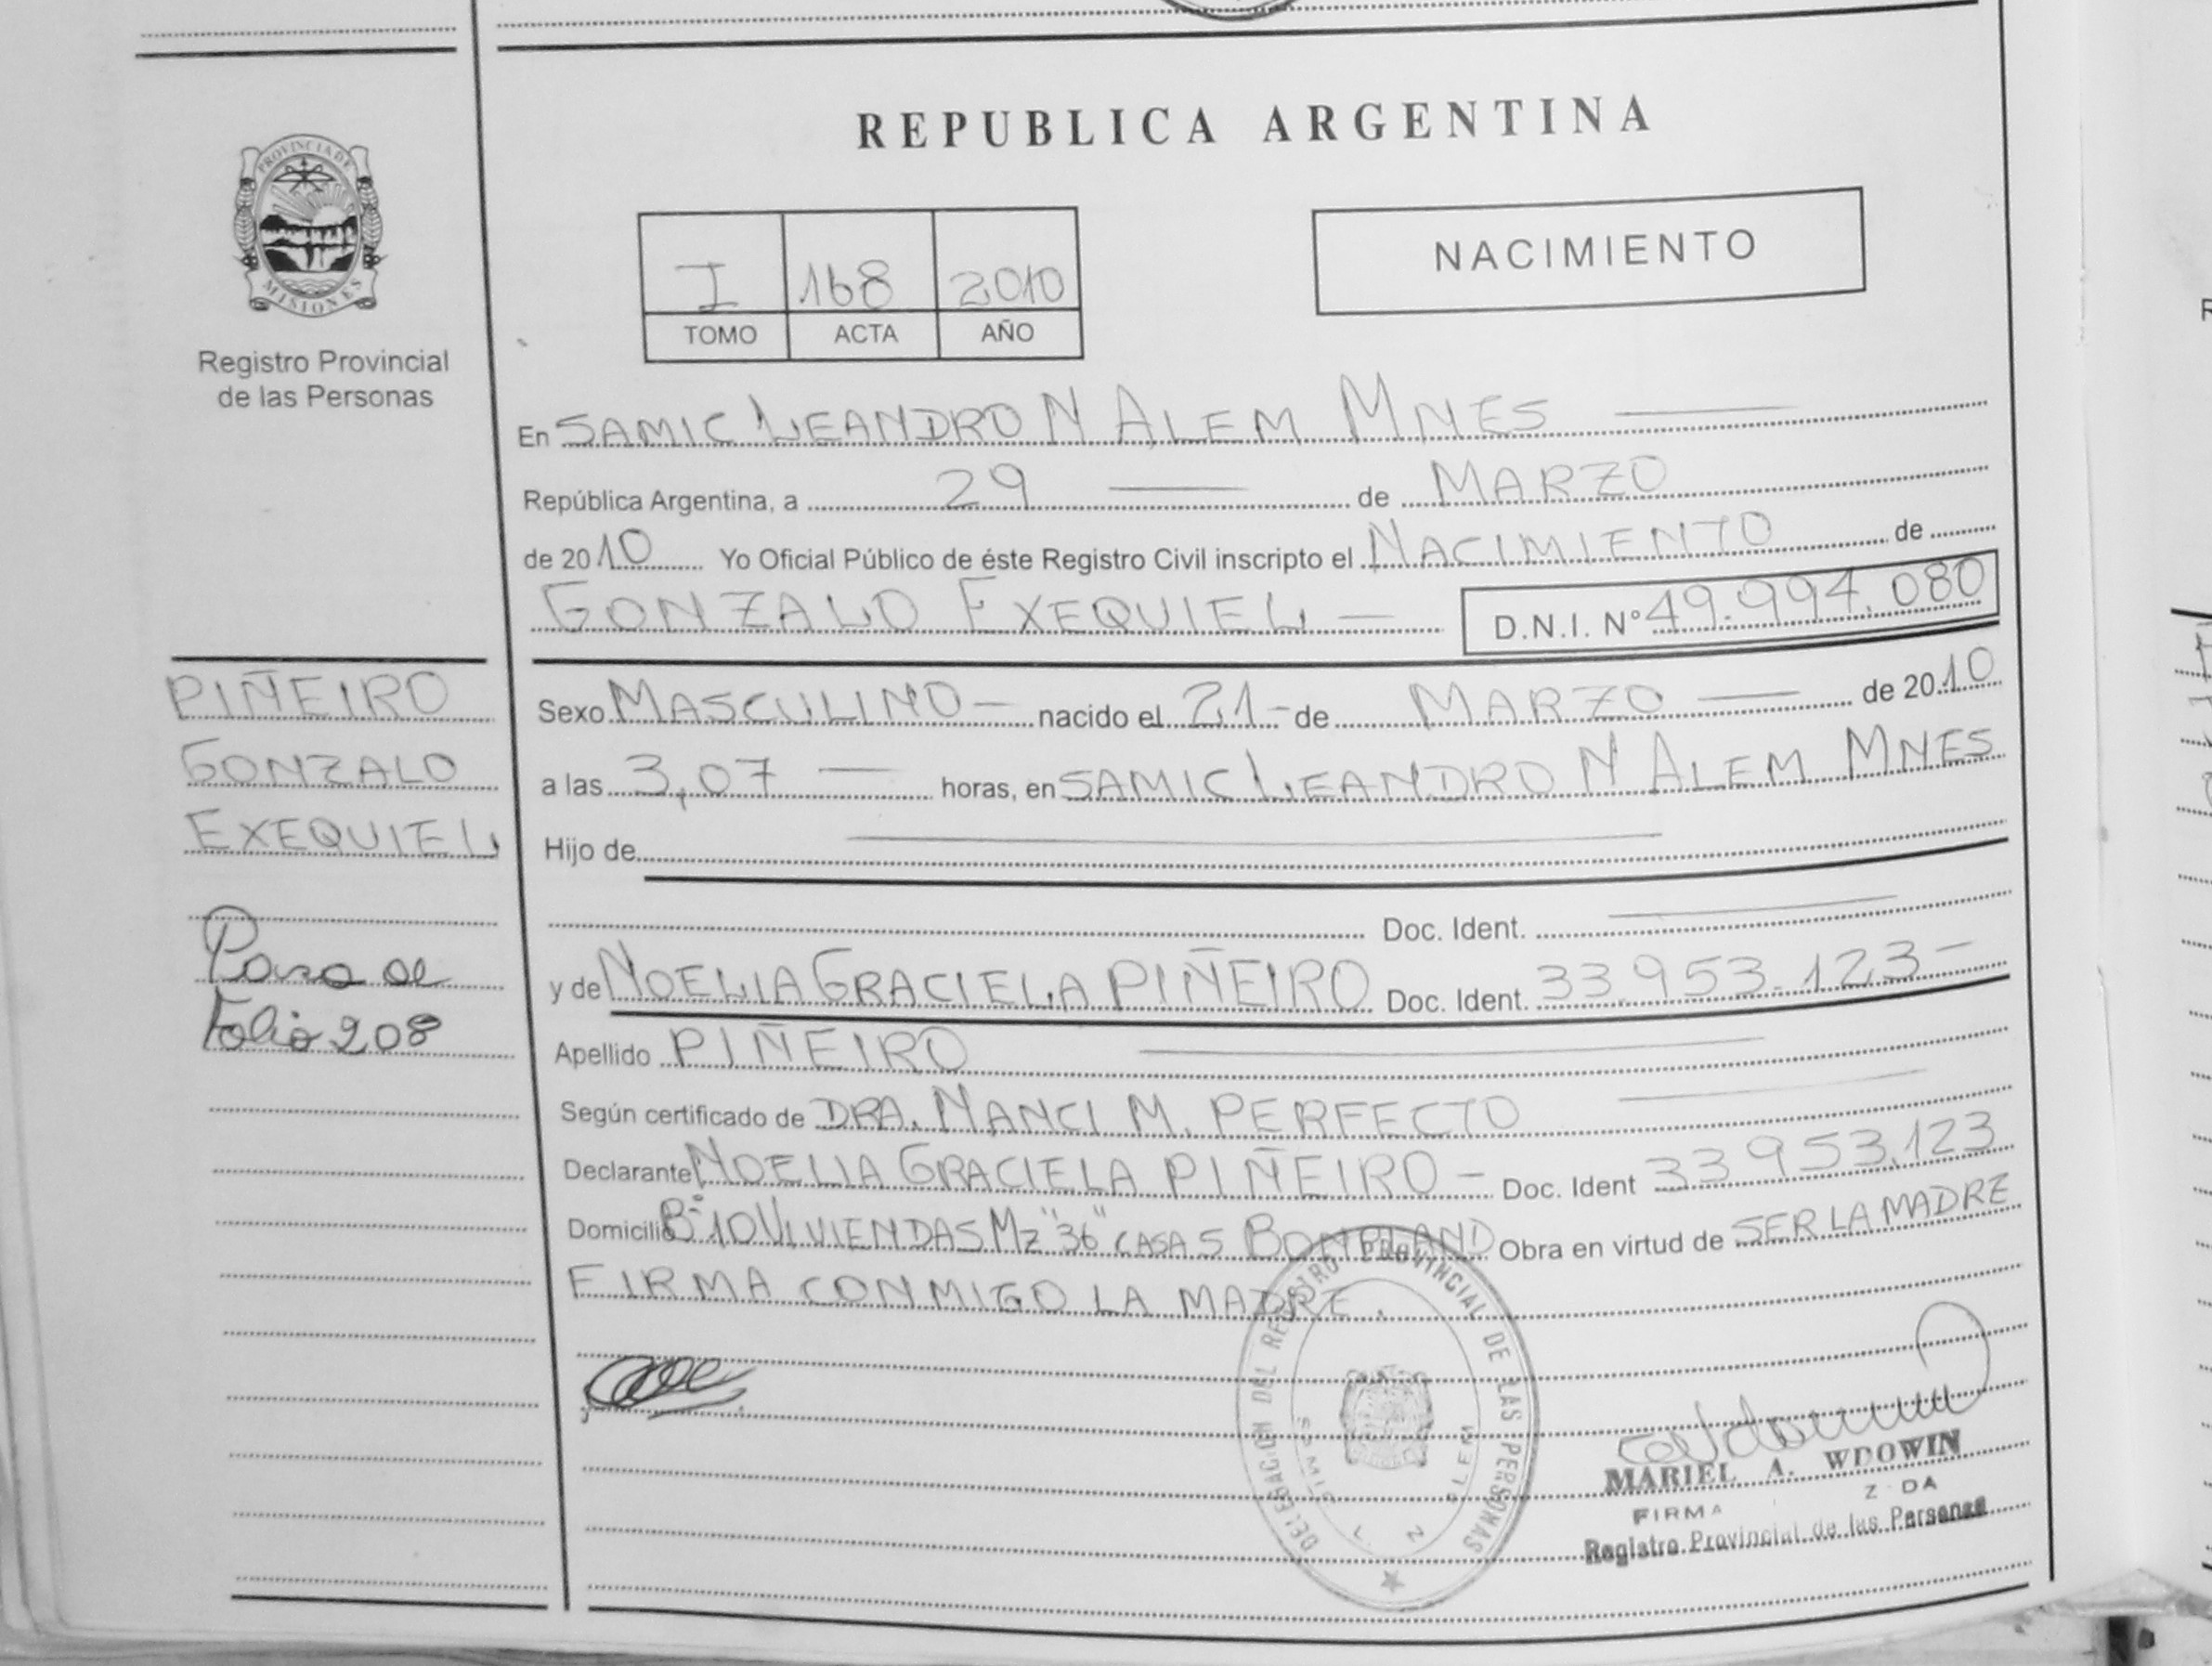 REPUBLICA ARGENTINA
PROVINCIA DE
MISIONES
Registro Provincial
de las Personas
I 168 2010
TOMO ACTA AÑO
NACIMIENTO
En SAMIC LEANDRO N ALEM MNES
República Argentina, a 29 de MARZO
de 2010 Yo Oficial Público de éste Registro Civil inscripto el NACIMIENTO de
GONZALO EXEQUIEL D.N.I. Nº 49.994.080
PIÑEIRO
GONZALO
EXEQUIEL
Pasa al
Folio 208
Sexo MASCULINO nacido el 21 de MARZO de 2010
a las 3,07 horas, en SAMIC LEANDRO N ALEM MNES
Hijo de
Doc. Ident.
y de NOELIA GRACIELA PIÑEIRO Doc. Ident. 33.953.123
Apellido PIÑEIRO
Según certificado de DRA. NANCI M. PERFECTO
Declarante NOELIA GRACIELA PIÑEIRO Doc. Ident 33953.123
Domicilio Bº 10 VIVIENDAS Mz "36" CASA 5 BONPLAND Obra en virtud de SER LA MADRE
FIRMA CONMIGO LA MADRE.
DELEGACION DEL REGISTRO PROVINCIAL DE LAS PERSONAS
SAMIC L N ALEM
MARIEL A. WDOWIN
FIRMA
Registro Provincial de las Personas